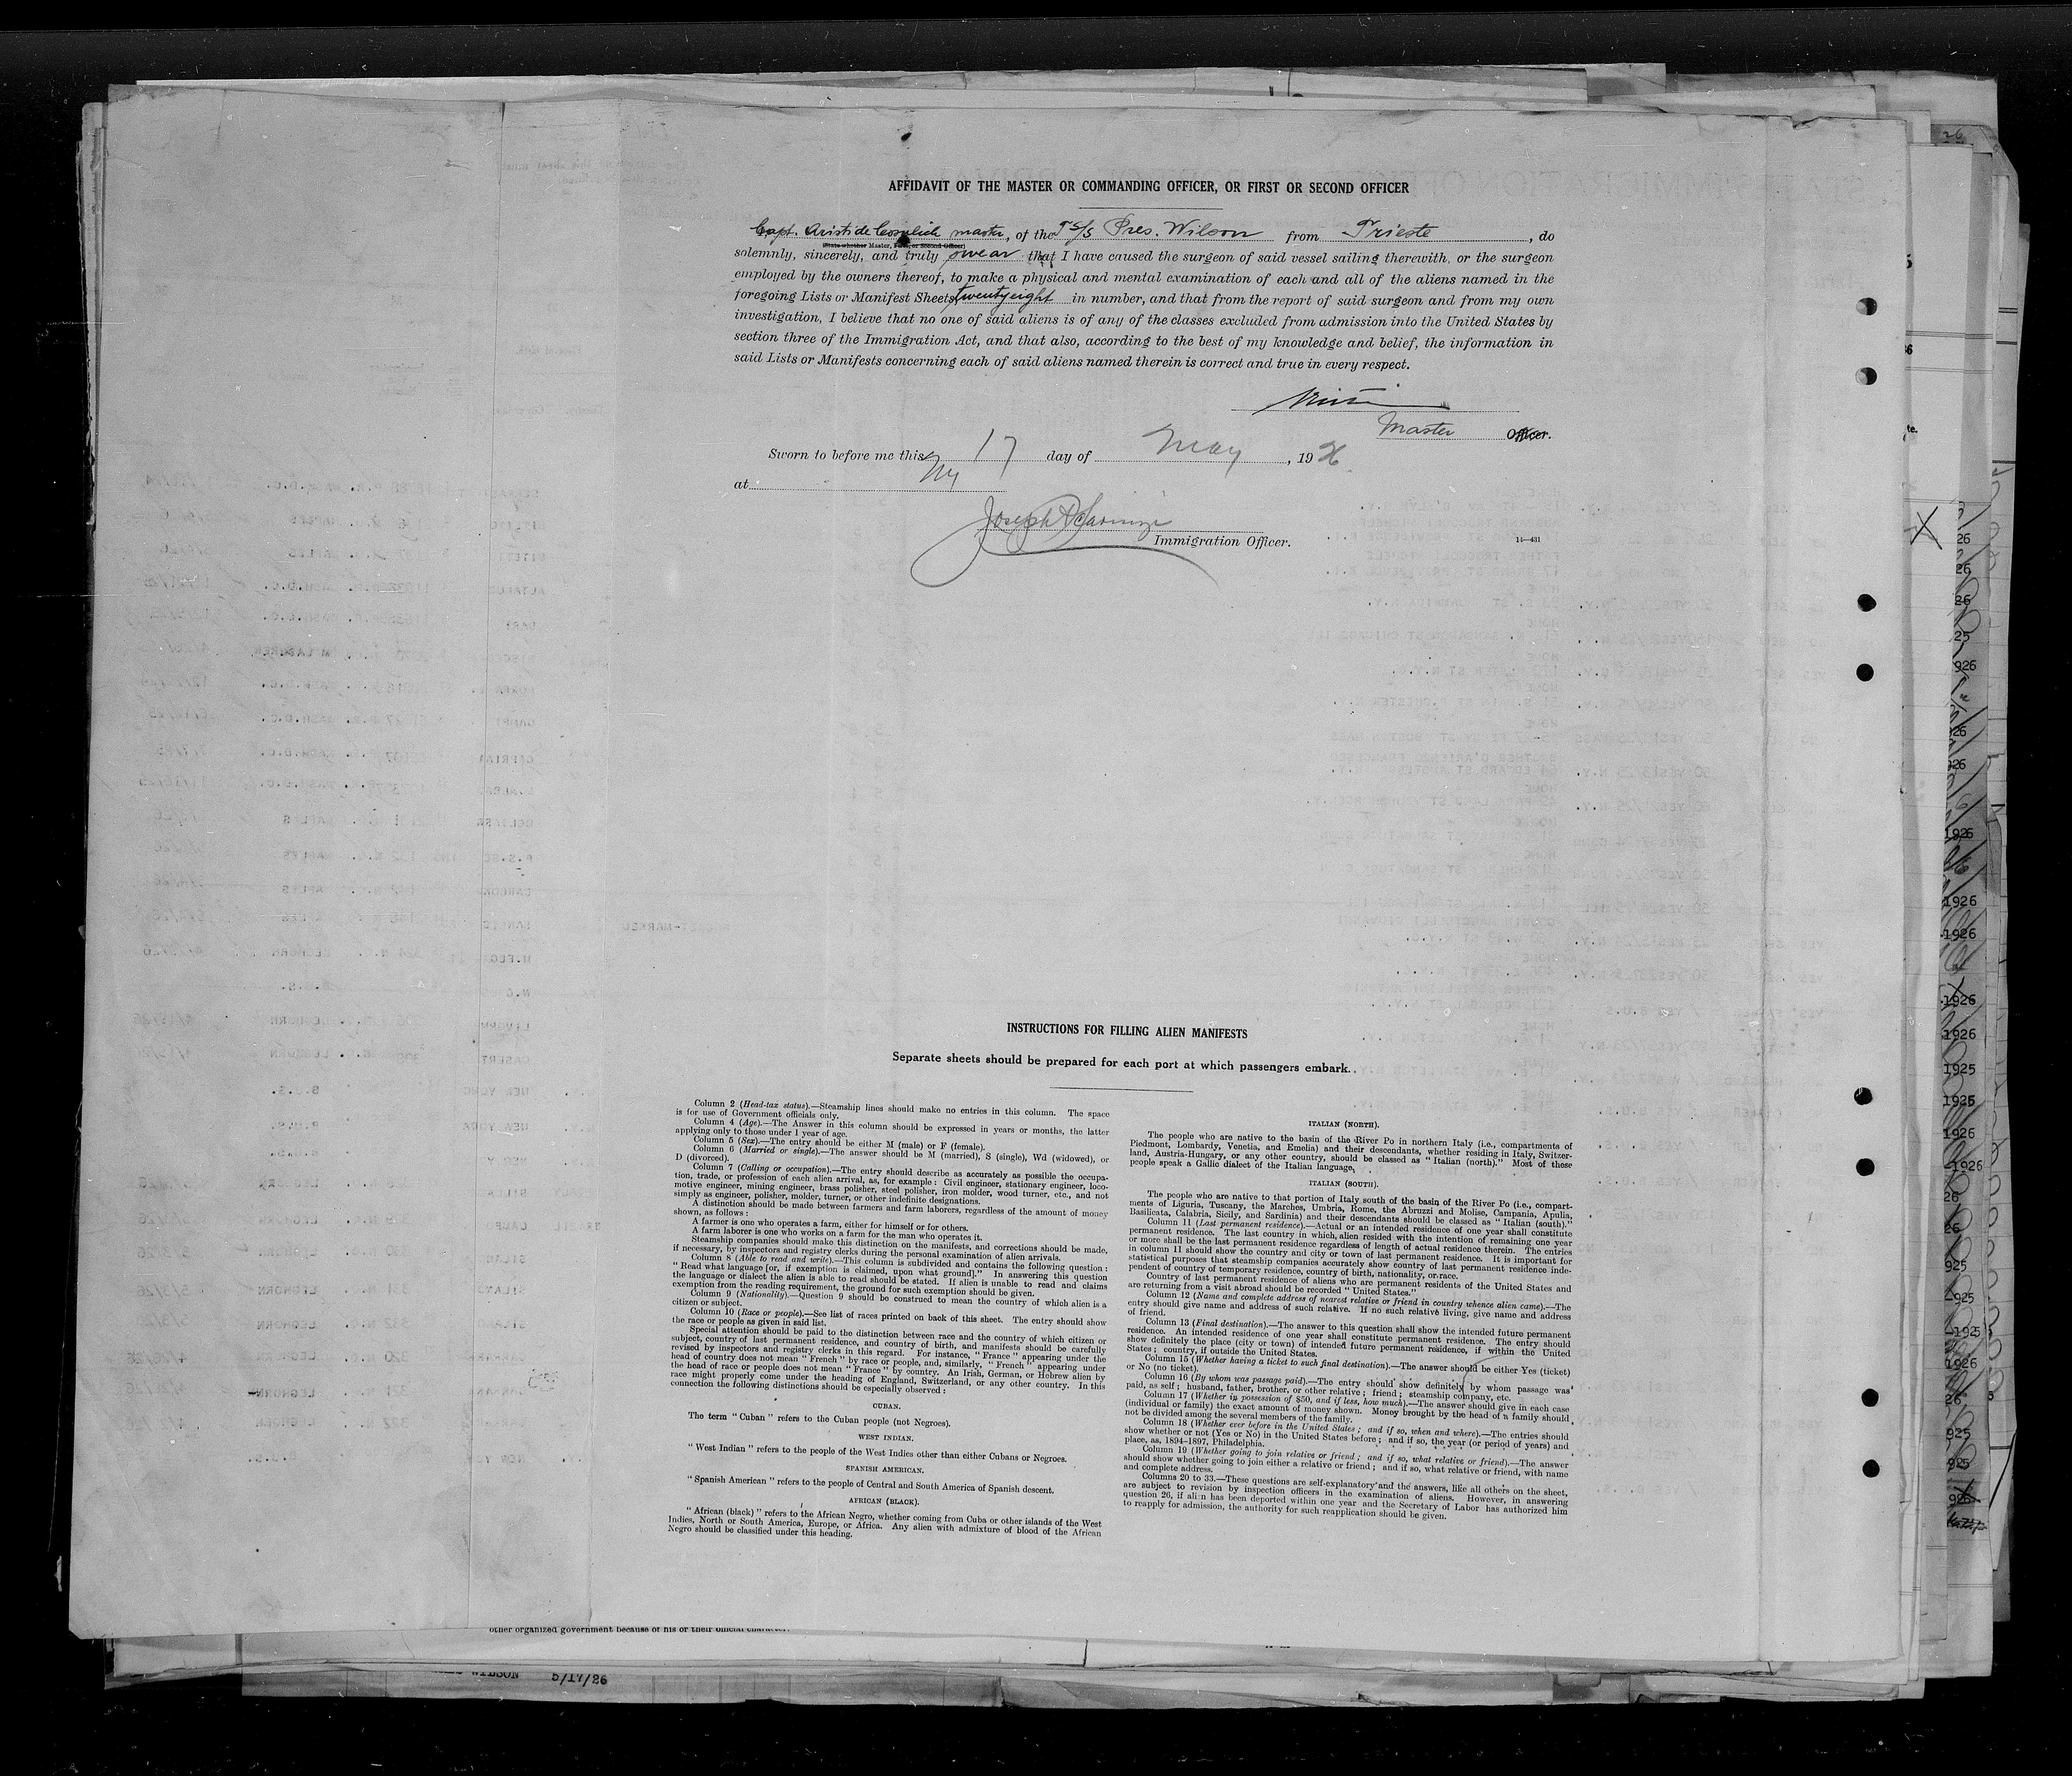 AFFIDAVIT OF THE MASTER OR COMMANDING OFFICER, OR FIRST OR SECOND OFFICER
Capt. Aristide Cosulich master, of the TS/S Pres. Wilson from Trieste, do
(State whether Master, First, or Second Officer)
solemnly, sincerely, and truly swear that I have caused the surgeon of said vessel sailing therewith, or the surgeon
employed by the owners thereof, to make a physical and mental examination of each and all of the aliens named in the
foregoing Lists or Manifest Sheets, twentyeight in number, and that from the report of said surgeon and from my own
investigation, I believe that no one of said aliens is of any of the classes excluded from admission into the United States by
section three of the Immigration Act, and that also, according to the best of my knowledge and belief, the information in
said Lists or Manifests concerning each of said aliens named therein is correct and true in every respect.
Master Officer.
Sworn to before me this 17 day of May, 1926
at NY
Joseph
Immigration Officer.
14—431
INSTRUCTIONS FOR FILLING ALIEN MANIFESTS
Separate sheets should be prepared for each port at which passengers embark.
Column 2 (Head-tax status).—Steamship lines should make no entries in this column. The space
is for use of Government officials only.
Column 4 (Age).—The Answer in this column should be expressed in years or months, the latter
applying only to those under 1 year of age.
Column 5 (Sex).—The entry should be either M (male) or F (female).
Column 6 (Married or single).—The answer should be M (married), S (single), Wd (widowed), or
D (divorced).
Column 7 (Calling or occupation).—The entry should describe as accurately as possible the occupa-
tion, trade, or profession of each alien arrival, as, for example: Civil engineer, stationary engineer, loco-
motive engineer, mining engineer, brass polisher, steel polisher, iron molder, wood turner, etc., and not
simply as engineer, polisher, molder, turner, or other indefinite designations.
A distinction should be made between farmers and farm laborers, regardless of the amount of money
shown, as follows:
A farmer is one who operates a farm, either for himself or for others.
A farm laborer is one who works on a farm for the man who operates it.
Steamship companies should make this distinction on the manifests, and corrections should be made,
if necessary, by inspectors and registry clerks during the personal examination of alien arrivals.
Column 8 (Able to read and write).—This column is subdivided and contains the following question:
"Read what language [or, if exemption is claimed, upon what ground]." In answering this question
the language or dialect the alien is able to read should be stated. If alien is unable to read and claims
exemption from the reading requirement, the ground for such exemption should be given.
Column 9 (Nationality).—Question 9 should be construed to mean the country of which alien is a
citizen or subject.
Column 10 (Race or people).—See list of races printed on back of this sheet. The entry should show
the race or people as given in said list.
Special attention should be paid to the distinction between race and the country of which citizen or
subject, country of last permanent residence, and country of birth, and manifests should be carefully
revised by inspectors and registry clerks in this regard. For instance, "France" appearing under the
head of country does not mean "French" by race or people, and, similarly, "French" appearing under
the head of race or people does not mean "France" by country. An Irish, German, or Hebrew alien by
race might properly come under the heading of England, Switzerland, or any other country. In this
connection the following distinctions should be especially observed:
CUBAN.
The term "Cuban" refers to the Cuban people (not Negroes).
WEST INDIAN.
"West Indian" refers to the people of the West Indies other than either Cubans or Negroes.
SPANISH AMERICAN.
"Spanish American" refers to the people of Central and South America of Spanish descent.
AFRICAN (BLACK).
"African (black)" refers to the African Negro, whether coming from Cuba or other islands of the West
Indies, North or South America, Europe, or Africa. Any alien with admixture of blood of the African
Negro should be classified under this heading.
ITALIAN (NORTH).
The people who are native to the basin of the River Po in northern Italy (i.e., compartments of
Piedmont, Lombardy, Venetia, and Emelia) and their descendants, whether residing in Italy, Switzer-
land, Austria-Hungary, or any other country, should be classed as "Italian (north)." Most of these
people speak a Gallic dialect of the Italian language.
ITALIAN (SOUTH).
The people who are native to that portion of Italy south of the basin of the River Po (i.e., compart-
ments of Liguria, Tuscany, the Marches, Umbria, Rome, the Abruzzi and Molise, Campania, Apulia,
Basilicata, Calabria, Sicily, and Sardinia) and their descendants should be classed as "Italian (south)."
Column 11 (Last permanent residence).—Actual or an intended residence of one year shall constitute
permanent residence. The last country in which alien resided with the intention of remaining one year
or more shall be the last permanent residence regardless of length of actual residence therein. The entries
in column 11 should show the country and city or town of last permanent residence. It is important for
statistical purposes that steamship companies accurately show country of last permanent residence inde-
pendent of country of temporary residence, country of birth, nationality, or race.
Country of last permanent residence of aliens who are permanent residents of the United States and
are returning from a visit abroad should be recorded "United States."
Column 12 (Name and complete address of nearest relative or friend in country whence alien came).—The
entry should give name and address of such relative. If no such relative living, give name and address
of friend.
Column 13 (Final destination).—The answer to this question shall show the intended future permanent
residence. An intended residence of one year shall constitute permanent residence. The entry should
show definitely the place (city or town) of intended future permanent residence, if within the United
States; country, if outside the United States.
Column 15 (Whether having a ticket to such final destination).—The answer should be either Yes (ticket)
or No (no ticket).
Column 16 (By whom was passage paid).—The entry should show definitely by whom passage was
paid, as self; husband, father, brother, or other relative; friend; steamship company, etc.
Column 17 (Whether in possession of $50, and if less, how much).—The answer should give in each case
(individual or family) the exact amount of money shown. Money brought by the head of a family should
not be divided among the several members of the family.
Column 18 (Whether ever before in the United States; and if so, when and where).—The entries should
show whether or not (Yes or No) in the United States before; and if so, the year (or period of years) and
place, as, 1894–1897, Philadelphia.
Column 19 (Whether going to join relative or friend; and if so, what relative or friend).—The answer
should show whether going to join either a relative or friend; and if so, what relative or friend, with name
and complete address.
Columns 20 to 33.—These questions are self-explanatory and the answers, like all others on the sheet,
are subject to revision by inspection officers in the examination of aliens. However, in answering
question 26, if alien has been deported within one year and the Secretary of Labor has authorized him
to reapply for admission, the authority for such reapplication should be given.
other organized government because of his or their official character.
WILSON 5/17/26